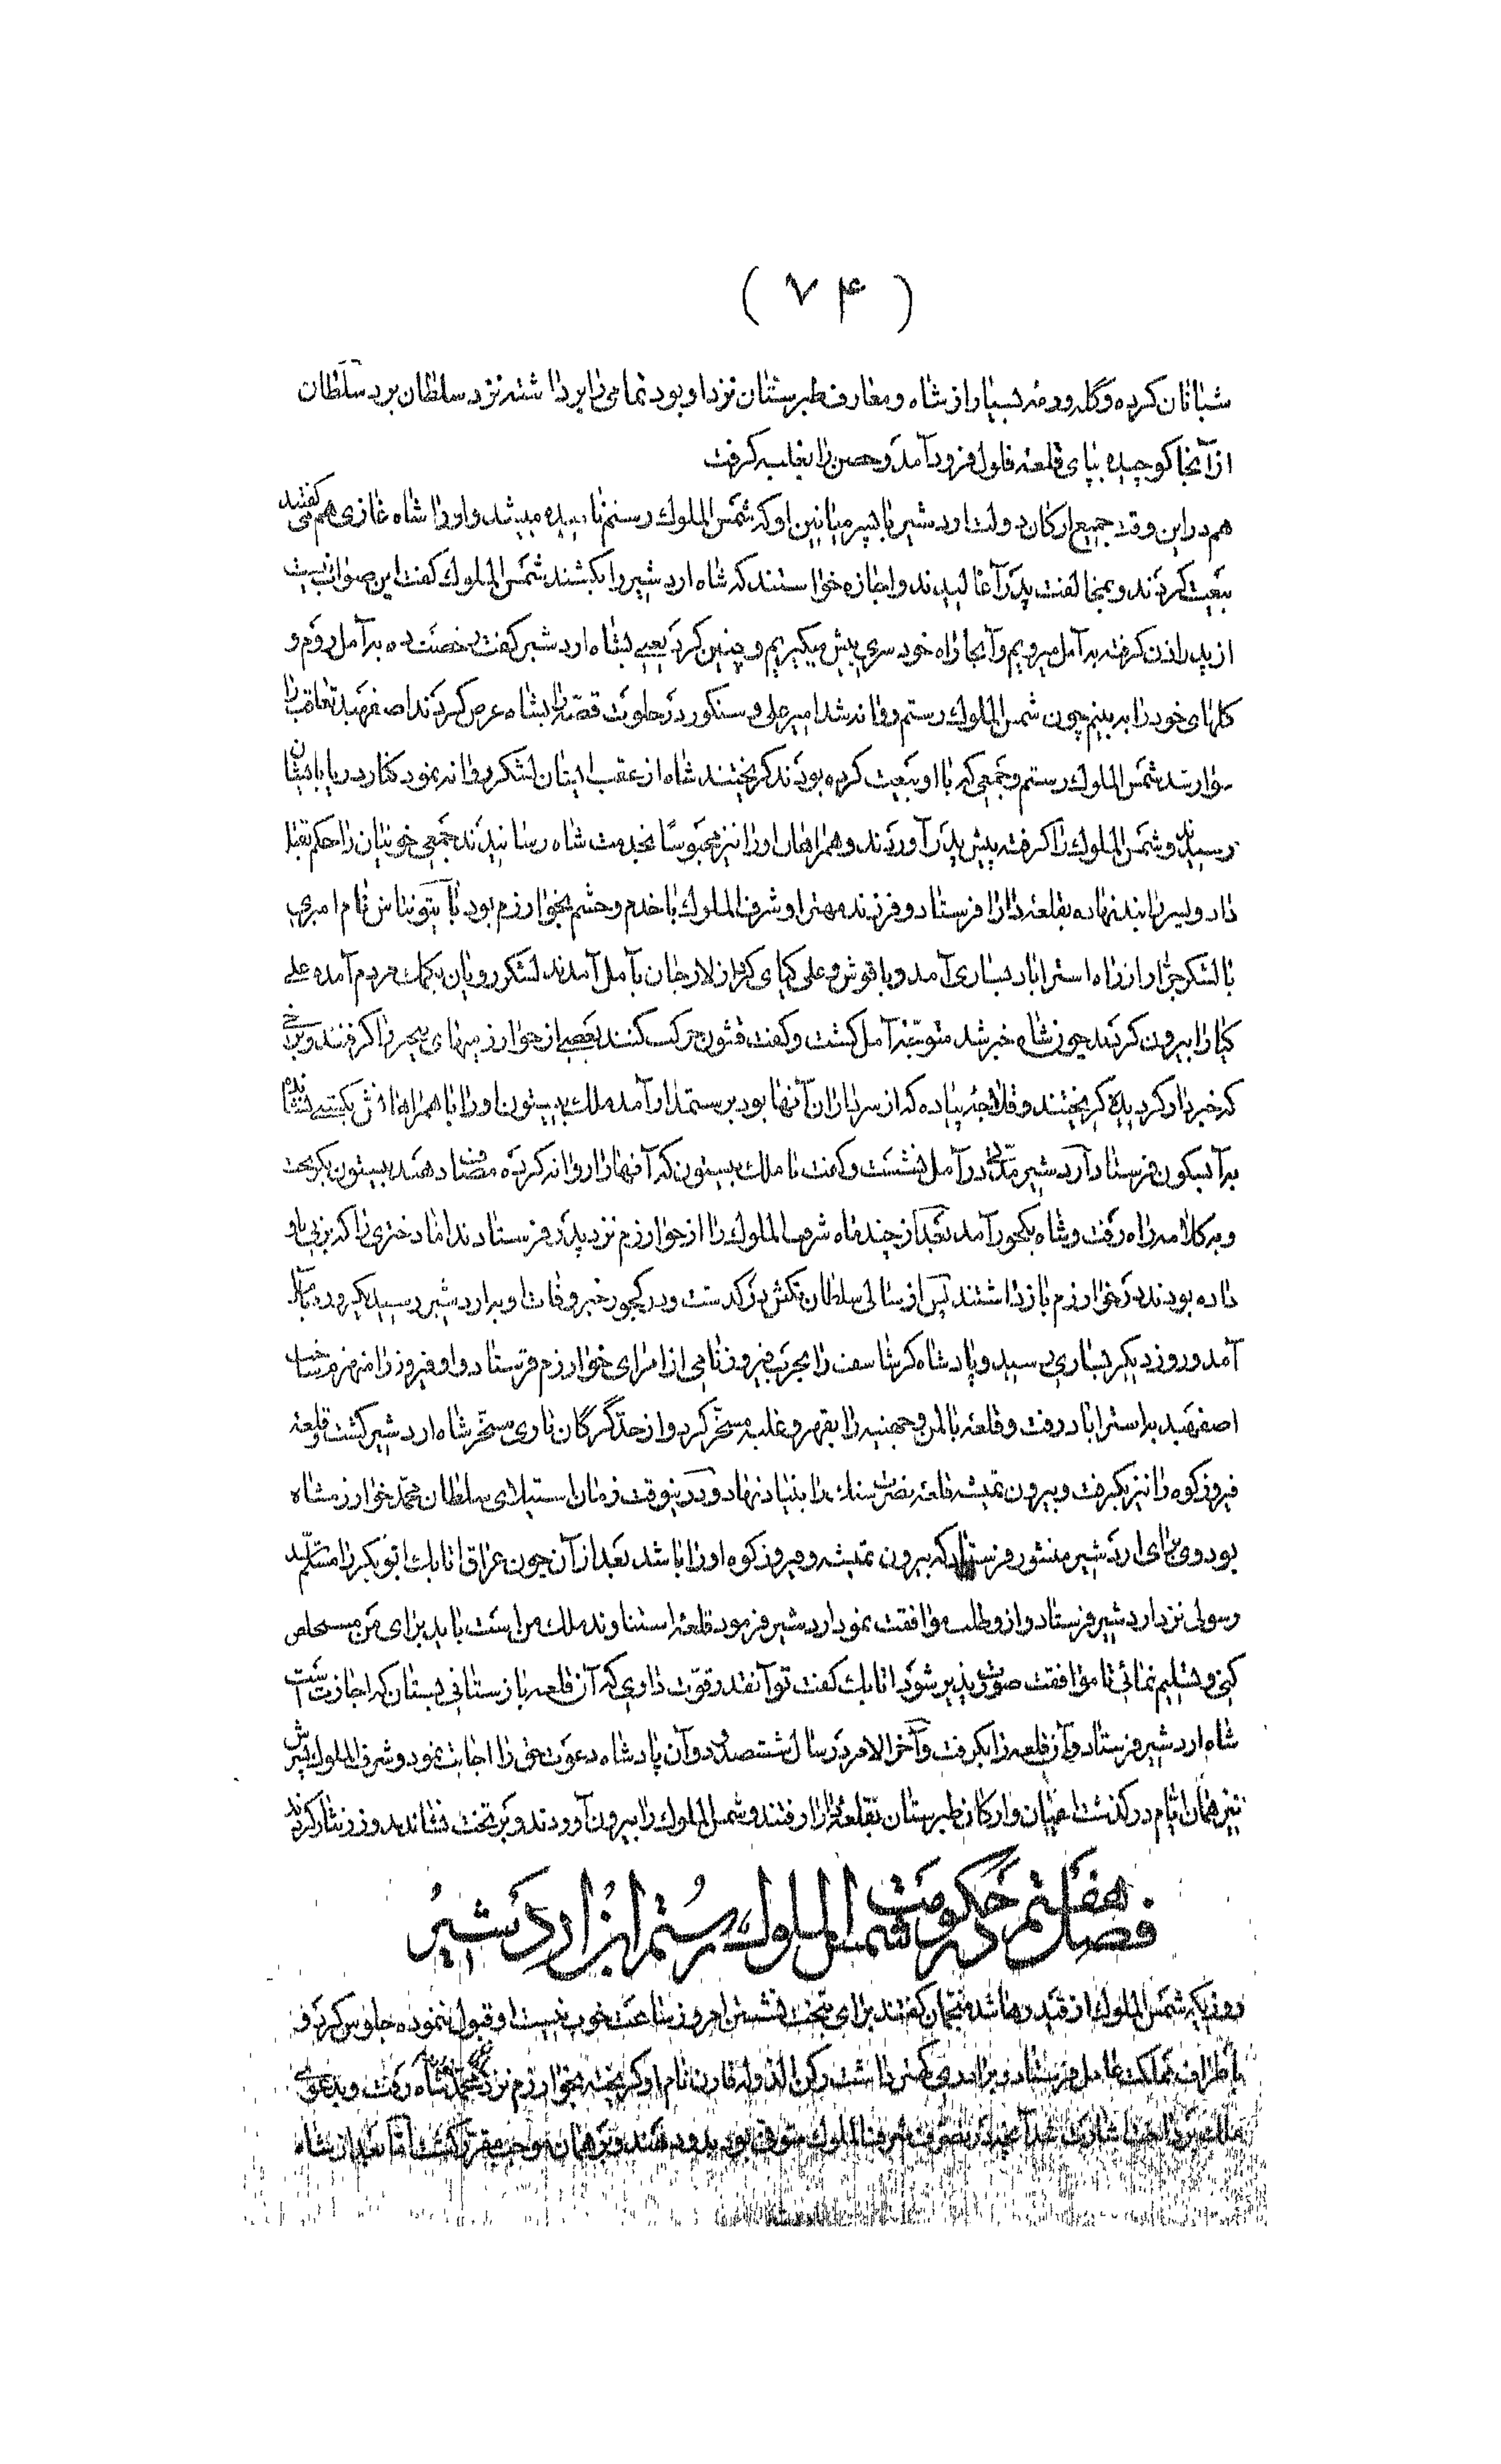 ( ۷۴ )
شبانان کرده و گله و رمه بسیار از شاه و معارف طبرستان نزد او بود تمامی را برداشته نزد سلطان برد سلطان
از آنجا کوچیده بپای قلعه فلول فرود آمد و حصن را بغلبه گرفت
هم در این وقت جمیع ارکان دولت اردشیر با پسر میانین او که شمس الملوک رستم نامیده میشد و او را شاه غازی هم می گفتند
بیعت کردند و بمخالفت پدر آغالیدند و اجازه خواستند که شاه اردشیر را بکشند شمس الملوک گفت این صواب نیست
از پدر اذن گرفته به آمل میرویم و آنجا راه خودسری پیش میگیریم و چنین کرد یعنی بشاه اردشیر گفت رخصت ده به آمل روم و
گلهای خود را به بینم چون شمس الملوک رستم روانه شد امیر علی و سنکور در خلوت قصه را بشاه عرض کردند اصفهبد تعاقب را
سوار شد شمس الملوک رستم و جمعی که با او بیعت کرده بودند گریختند شاه از عقب ایشان لشکر روانه نمود کنار دریا بایشان
رسیدند و شمس الملوک را گرفته پیش پدر آوردند و همراهان او را نیز محبوسا بخدمت شاه رسانیدند جمعی خونیان را حکم بقتل
داد و پسر را بند نهاده بقلعه دارا فرستاد و فرزند مهتر او شرف الملوک با خدم و حشم بخوارزم بود با نام امیری
با لشکر جرار از راه استراباد بساری آمد و باقوش و علی کیای که از لارجان بآمل آمدند لشکر رویان بکمک مردم آمده علی
کیا را بیرون کردند چون شاه خبر شد متوجه آمل گشت و گفت قشون حرکت کنند بعضی از خوارزمیهای بیخبر را گرفتند و برخی
که خبردار گردیده گریختند و پیاده که از سربازان آنها بود برستمدار آمده ملک بیستون او را با همراهانش بکشتی نشانده
به آبسکون فرستاد اردشیر مدتی در آمل نشست و گفت تا ملک بیستون که آنها را روانه کرده دهند بیستون بگریخت
و به کلامه راه رفت و شاه بکجور آمد بعد از چند ماه شرف الملوک را از خوارزم نزد پدر فرستادند اما دختری را که بزنی باو
داده بودند در خوارزم باز داشتند پس از سالی سلطان تکش درگذشت و در کجور خبر وفات او به اردشیر رسید بآمل
آمد و روز دیگر بساری رسید و پادشاه کرشاسف را بحرب فیروز نامی از امرای خوارزم فرستاد و او فیروز را منهزم ساخت
اصفهبد به استراباد رفت و قلعه بالمن و جهنیه را بقهر و غلبه مسخر کرد و از حد گرگان تا ری مسخر شاه اردشیر گشت و قلعه
فیروزکوه را نیز بگرفت و بیرون تمیشه قلعه نصرت سنک را بنیاد نهاد و در اینوقت زمان استیلای سلطان محمد خوارزمشاه
بود وی برای اردشیر منشور فرستاد که بیرون تمیشه و فیروزکوه او را باشد بعد از آن چون عراق اتابک ابوبکر را مسلم شد
رسولی نزد اردشیر فرستاد و از او طلب موافقت نمود اردشیر فرمود قلعه استناوند ملک من است باید برای من مستخلص
کنی و تسلیم نمائی تا موافقت صورت پذیر شود اتابک گفت تو آنقدر قوت داری که آن قلعه باز ستانی بستان که اجازت است
شاه اردشیر فرستاد و آن قلعه را بگرفت و آخر الامر در سال ششصد و دو آن پادشاه دعوت حق را اجابت نمود و شرف الملوک پسرش
نیز همان ایام درگذشت اعیان و ارکان طبرستان بقلعه دارا رفتند و شمس الملوک را بیرون آوردند و بر تخت نشاندند و زر نثار کردند
فصل هفتم در حکومت شمس الملوک رستم ابن اردشیر
روزیکه شمس الملوک از قید رها شد منجمان گفتند برای بتخت نشستن امروز ساعت خوب نیست او قبول ننموده جلوس کرد و
باطراف مملکت عامل فرستاد و برادری کهتر داشت رکن الدوله قارن نام او گریخته بخوارزم نزد محمد شاه رفت و بدعوی
ملک اشارت شد آنچه در تصرف شرف الملوک متوفی بود بدو دهند و بر همان موجب مقرر گشت اما بعد از شاه